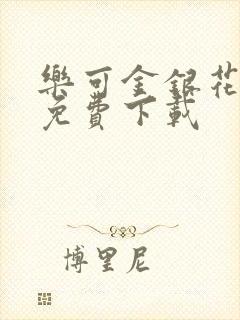 樂可金銀花
免費下載
博里尼